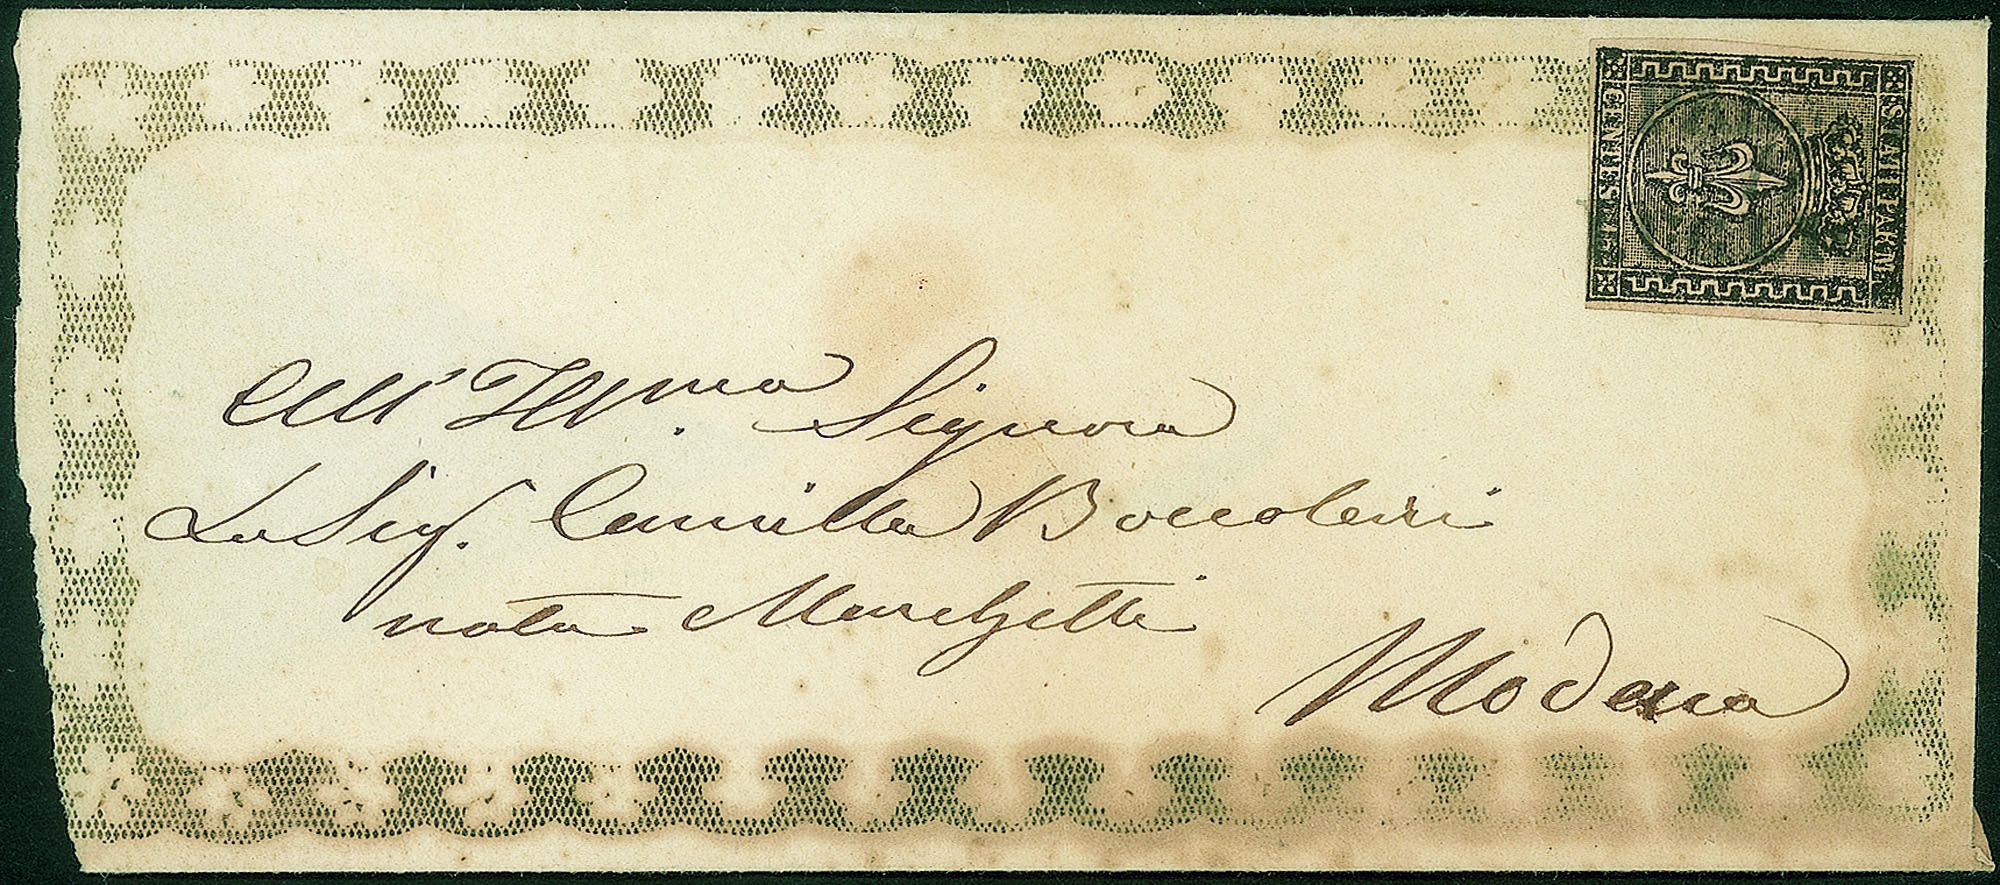 All' Ill.ma Signora
La Sig. Camilla Boccolari
nata Marchetti
Modena
STATI PARM.
CENTES. 15